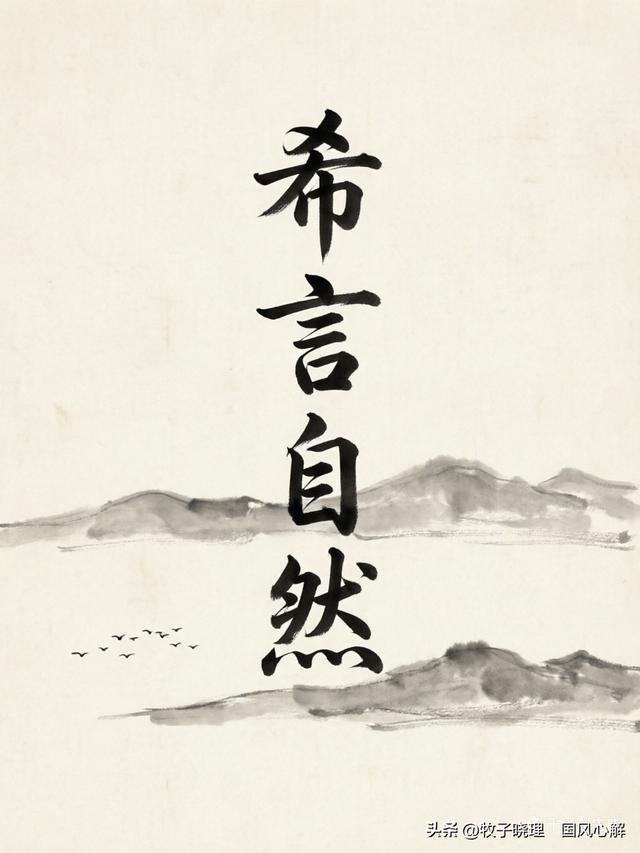 希言自然
头条 @牧子晓理 国风心解